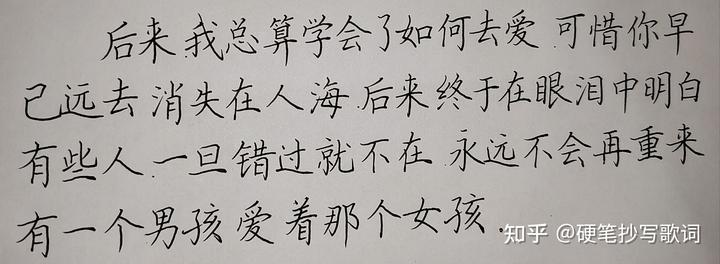 后来.我总算学会了如何去爱.可惜你早
已远去.消失在人海.后来终于在眼泪中明白
有些人.一旦错过就不在.永远不会再重来
有一个男孩爱着那个女孩.
知乎 @硬笔抄写歌词